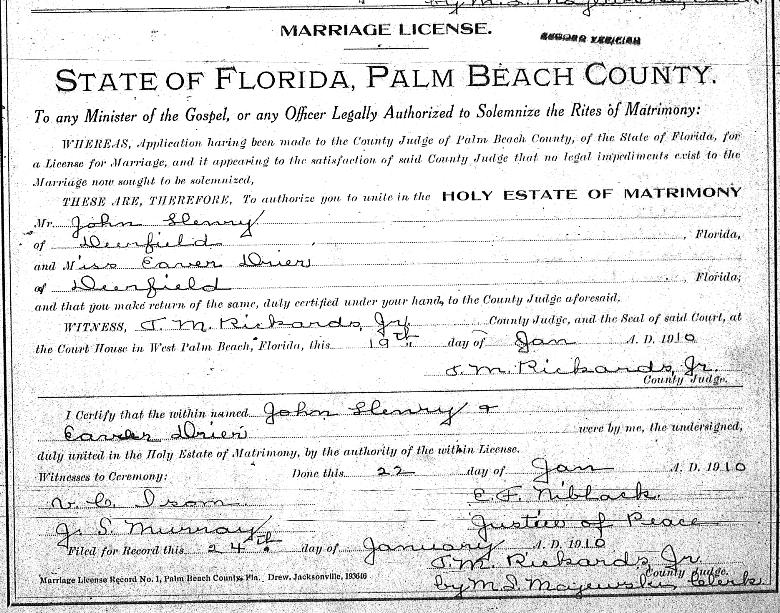 MARRIAGE LICENSE.
STATE OF FLORIDA, PALM BEACH COUNTY.
To any Minister of the Gospel, or any Officer Legally Authorized to Solemnize the Rites of Matrimony:
WHEREAS, Application having been made to the County Judge of Palm Beach County, of the State of Florida, for
a License for Marriage, and it appearing to the satisfaction of said County Judge that no legal impediments exist to the
Marriage now sought to be solemnized,
THESE ARE, THEREFORE, To authorize you to unite in the HOLY ESTATE OF MATRIMONY
Mr. John Henry
of Deerfield , Florida,
and Miss Eaver Drier
of Deerfield , Florida;
and that you make return of the same, duly certified under your hand, to the County Judge aforesaid.
WITNESS, J. M. Rickards, Jr. County Judge, and the Seal of said Court, at
the Court House in West Palm Beach, Florida, this 19th day of Jan A. D. 1910
J. M. Rickards, Jr.
County Judge.
I Certify that the within named John Henry &
Eaver Drier were by me, the undersigned,
duly united in the Holy Estate of Matrimony, by the authority of the within License.
Witnesses to Ceremony: Done this 22 day of Jan A. D. 1910
V. C. Isom E. F. Niblack
J. S. Murray Justice of Peace
Filed for Record this 24th day of January A. D. 1910
J. M. Rickards, Jr.
County Judge.
Marriage License Record No. 1, Palm Beach County, Fla. Drew, Jacksonville, 193646 by M. I. Majewski, Clerk